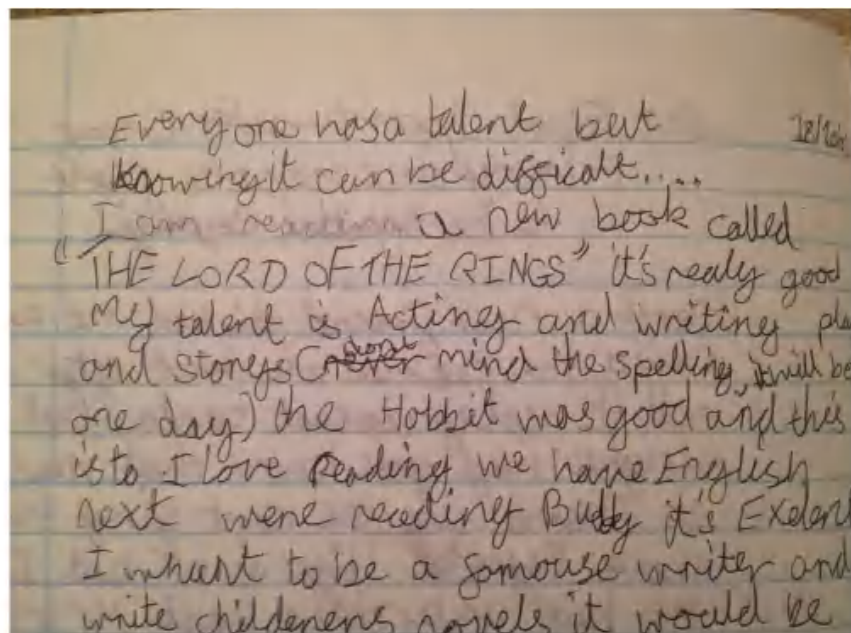 Everyone has a talent but
knowing it can be difficalt.....
I am reading a new book called
"THE LORD OF THE RINGS" it's realy good
My talent is Acting and writing pla
and storeys (dont mind the spelling, it will be
one day) the Hobbit was good and this
is to I love Reading we have English
next were reading Buddy it's Exelent
I whant to be a famouse writer and
write childenens novels it would be